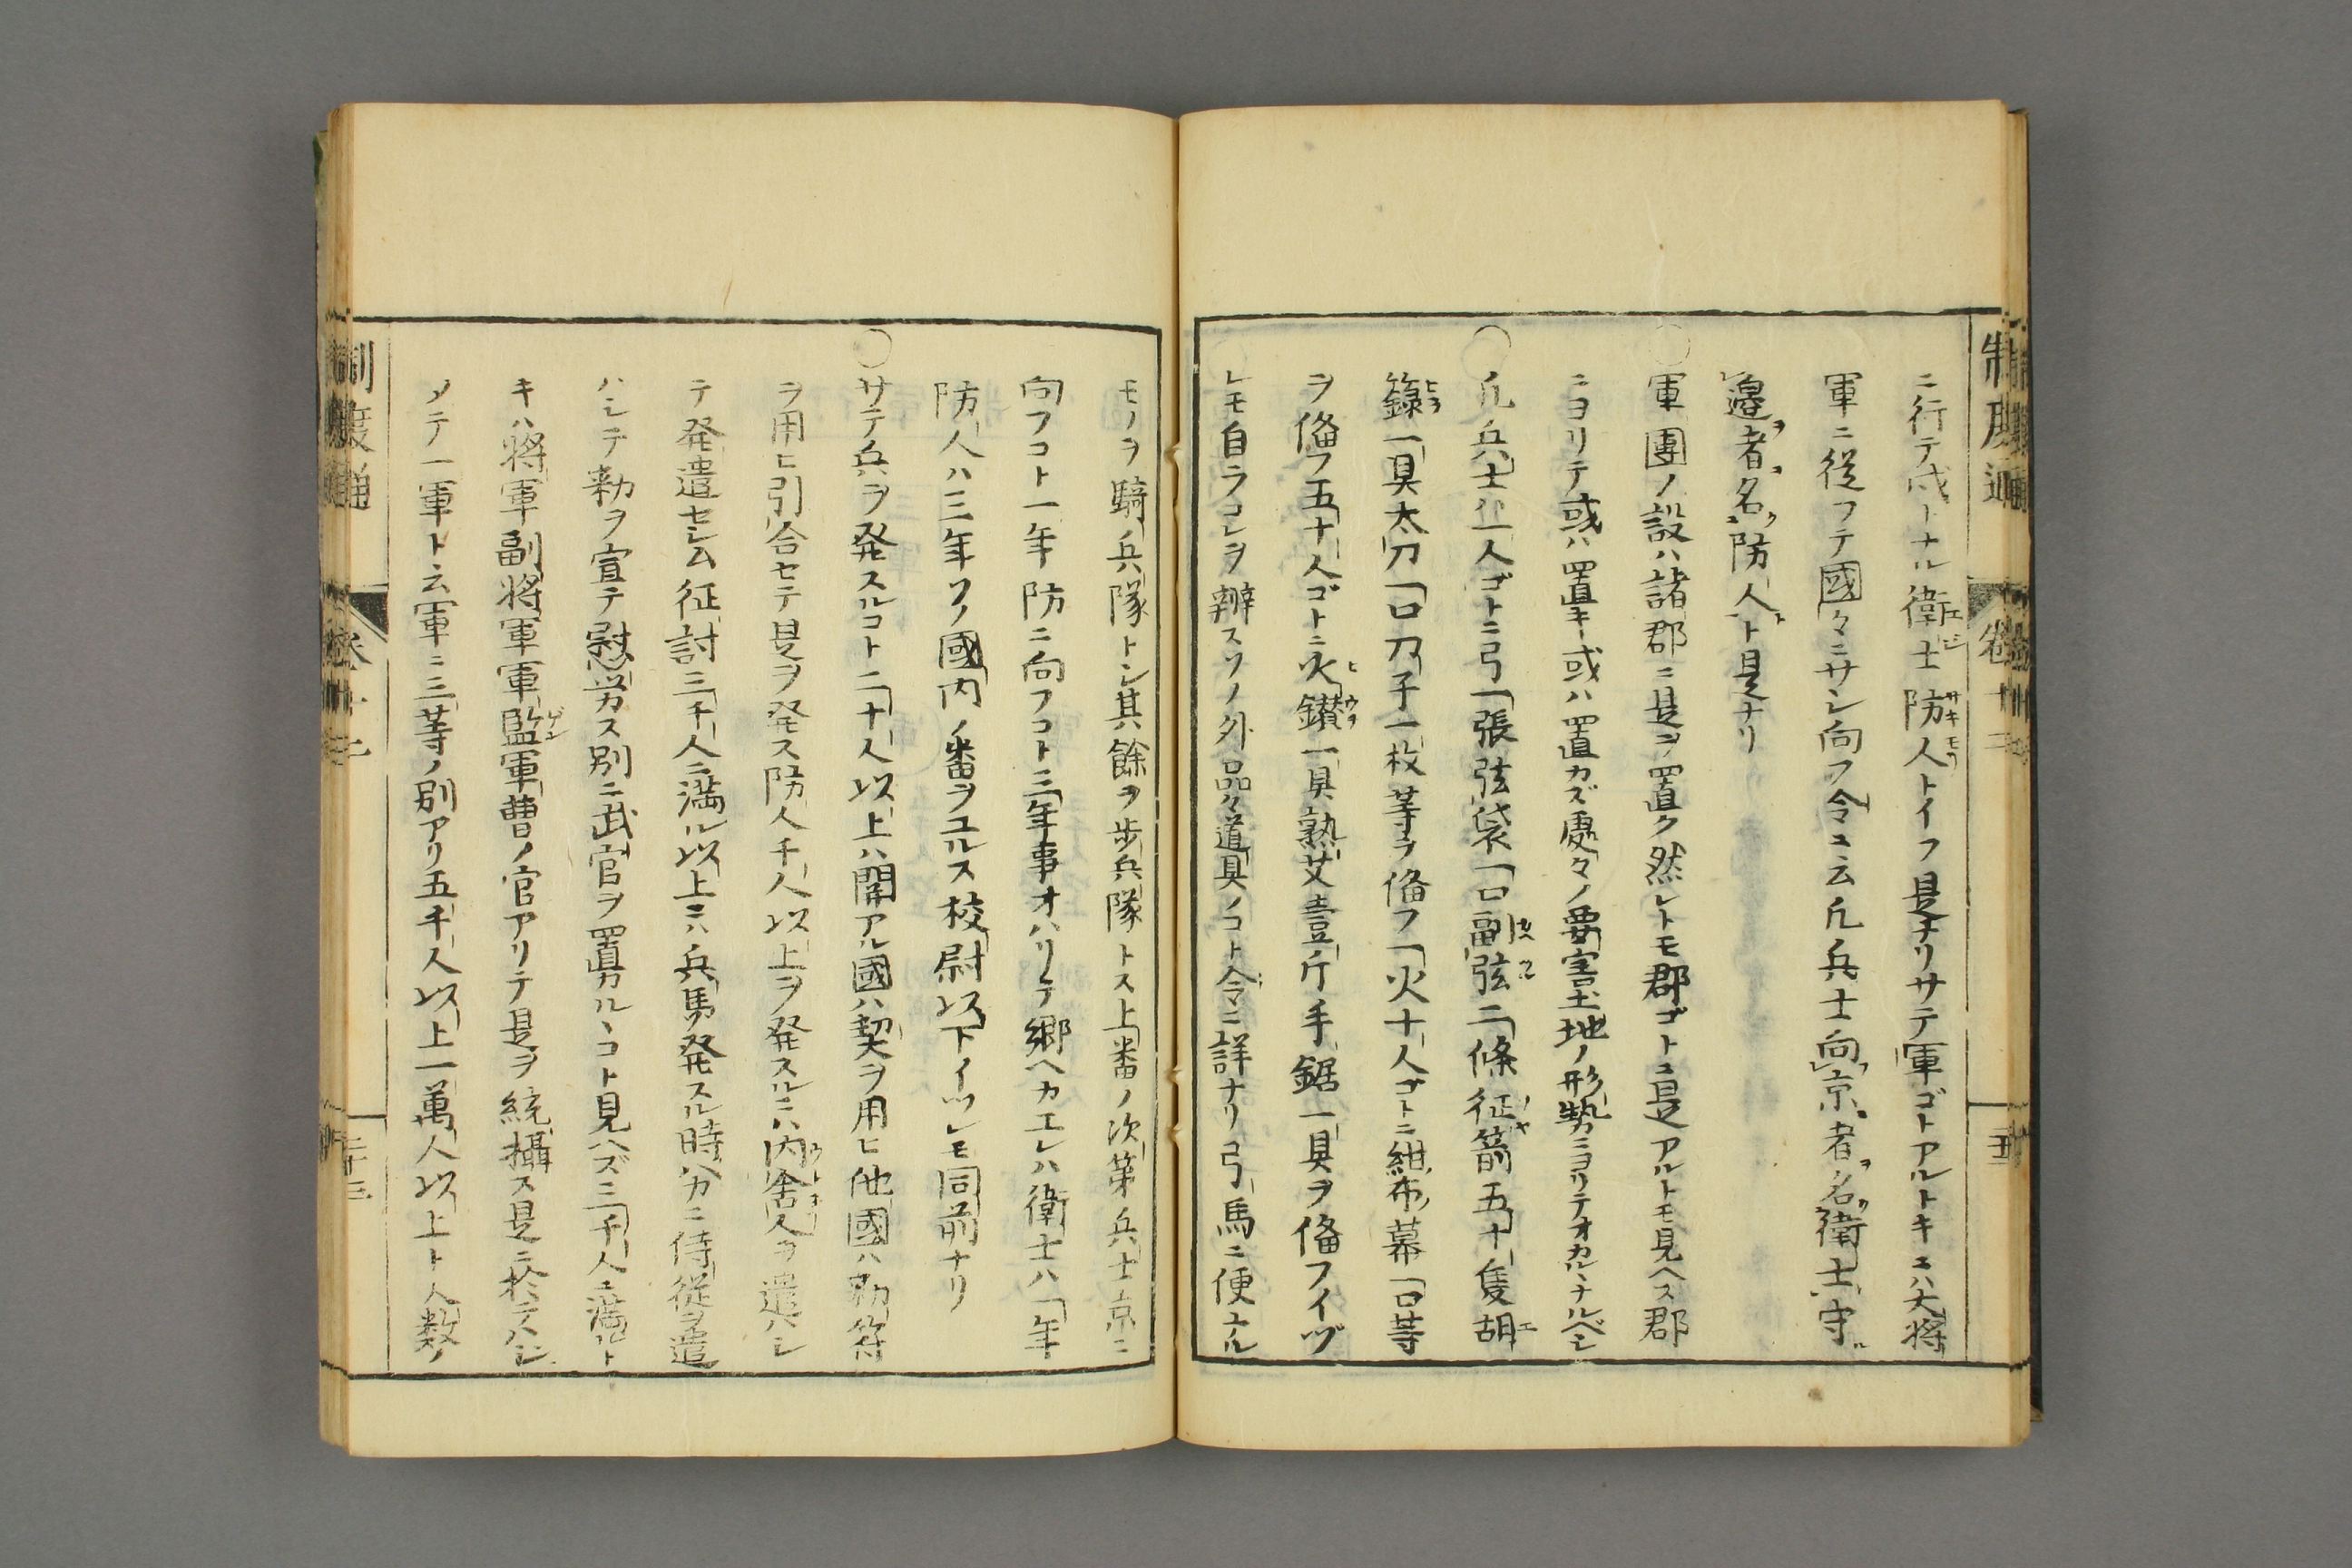 ニ行テ戍トナル衛士防人トイフ是ナリサテ軍ゴトアルトキニハ大将
軍ニ從フテ國々ニサシ向フ令ニ云凡兵士向京者名衛士守
邊者名防人ト是ナリ
○軍團ノ設ハ諸郡ニ是ヲ置ク然レトモ郡ゴトニ是アルトモ見ヘス郡
ニヨリテ或ハ置キ或ハ置カズ處々ノ要害土地ノ形勢ニヨリテオカルヽナルベシ
○凡兵士ハ一人ゴトニ弓一張弦袋一口副弦二條征箭五十隻胡
籙一具太刀一口刀子一枚等ヲ俻フ一火十人ゴトニ紺布幕一口等
ヲ俻フ五十人ゴトニ火鑚一具熟艾壹斤手鋸一具ヲ俻フイヅ
レモ自ラコレヲ辦スソノ外品々道具ノコト令ニ詳ナリ弓馬ニ便ナル
モノヲ騎兵隊トシ其餘ヲ歩兵隊トス上番ノ次第兵士京ニ
向フコト一年防ニ向フコト三年事オハリテ郷ヘカエレハ衛士ハ一年
防人ハ三年ソノ國内ノ番ヲユルス校尉以下イツレモ同前ナリ
○サテ兵ヲ発スルコト二十人以上ハ関アル國ハ契ヲ用ヒ他國ハ勅符
ヲ用ヒ引合セテ是ヲ発ス防人千人以上ヲ発スルニハ内舎人ヲ遣ハシ
テ発遣セシム征討三千人ニ満ル以上ニハ兵馬発スル時ハカニ侍從ヲ遣
ハシテ勅ヲ宣テ慰労ス別ニ武官ヲ置カルヽコト見ヘズ三千人ニ満ルト
キハ将軍副将軍軍監軍曹ノ官アリテ是ヲ統攝ス是ニ於テハシ
メテ一軍ト云軍ニ三等ノ別アリ五千人以上一萬人以上ト人数ノ
制度通
卷十二
二十三